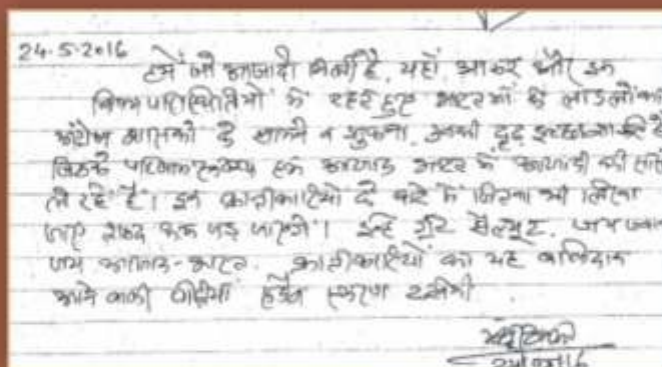 24.5.2016
हमें जो आजादी मिली है, यहाँ आकर और इन
विषम परिस्थितियों में रहते हुए भारत माँ के लाडलों का
अंग्रेज शासकों के सामने न झुकना, उनकी दृढ़ इच्छाशक्ति है
जिसके परिणामस्वरूप हम आजाद भारत में आजादी की सांस
ले रहे हैं। इन क्रांतीकारियों के बारे में जितना भी लिखा
जाए शब्द कम पड़ जाएंगे। इन्हें ग्रेट सैल्यूट. जय जवान
जय आजाद-भारत. क्रांतीकारियों का यह बलिदान
आने वाली पीढ़ीयां हमेशा स्मरण रखेंगी.